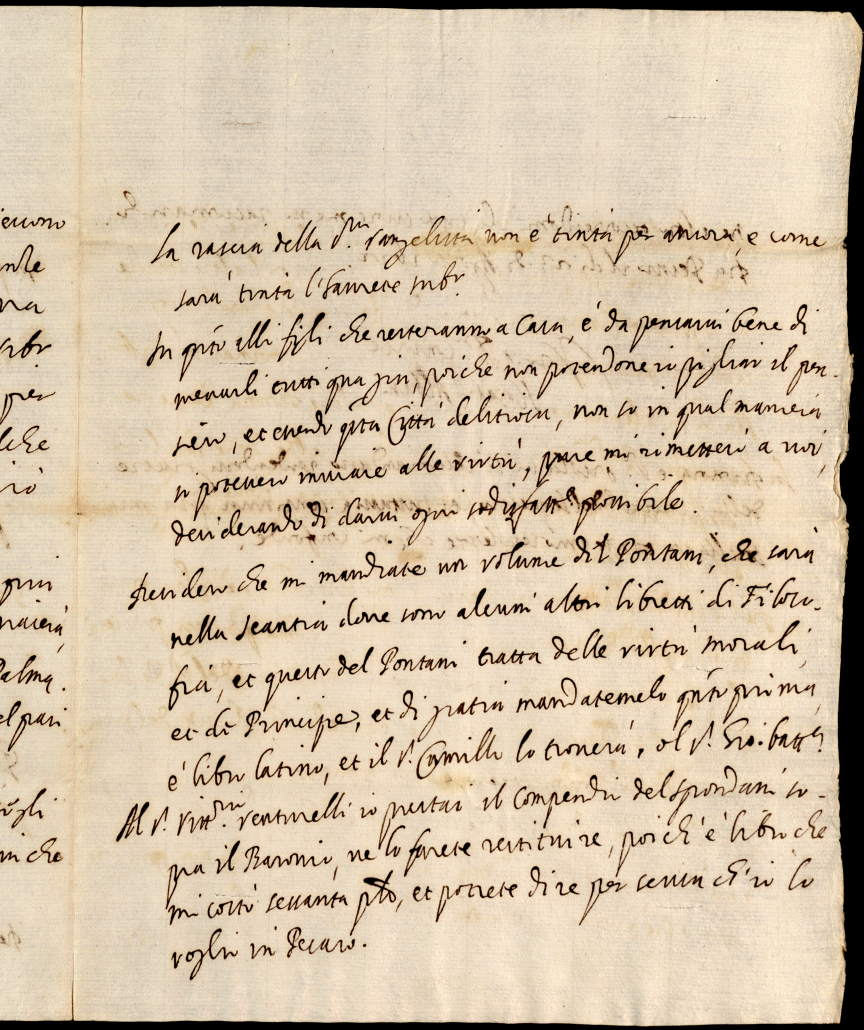 eccono
La rascia della S.ra Vangelista non è tinta per ancora, e come
sarà tinta l'haurete subº.
In qto alli figli che resteranno a Casa, è da pensarui bene di
menarli tutti qua giu, poiche non potendone io pigliar il pen-
siero, et essendo qsta Città delitiosa, non so in qual maniera
si potessero inuiare alle virtù, pure mi rimetterò a voi,
desiderando di darui ogni sodisfatte possibile.
Desidero che mi mandiate un volume del Pontani, che sarà
nella scantia doue sono alcuni altri libretti di Filoso-
fia, et questo del Pontani tratta delle virtù morali,
et de Principe, et di gratia mandatemelo qnto prima,
è libro latino, et il S.r Camillo lo trouerà, o l S.r Gio:battª.
Al S.r Vittrio Venturelli io prestai il Compendio del Spondani so-
pra il Baronio, ve lo farete restituire, poich' è libro che
mi costò sessanta pli, et potrete dire per scusa ch' io lo
voglio in Pesaro.
che
Palma.
el pari
che